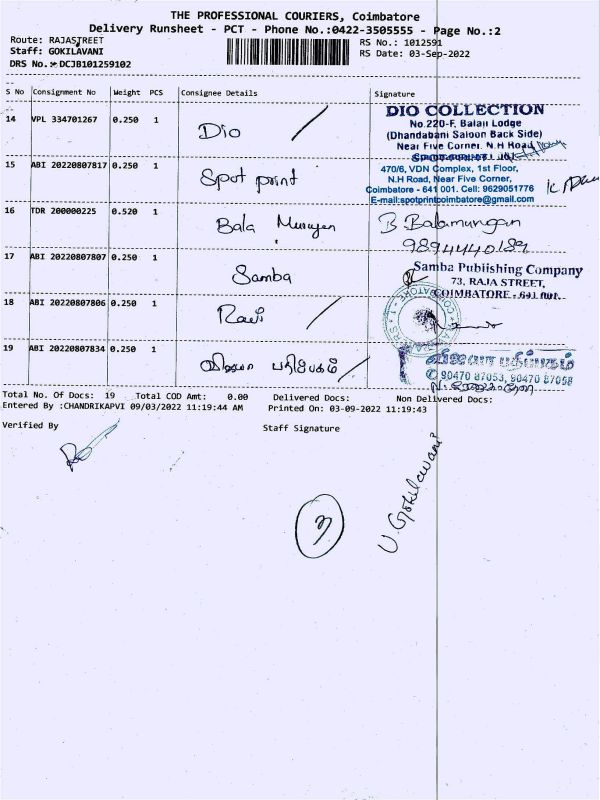 THE PROFESSIONAL COURIERS, Coimbatore
Delivery Runsheet - PCT - Phone No.:0422-3505555 - Page No.:2
Route: RAJASTREET
RS No.: 1012591
Staff: GOKILAVANI
RS Date: 03-Sep-2022
DRS No.:- DCJB101259102
S No Consignment No Weight PCS Consignee Details Signature
14 VPL 334701267 0.250 1 Dio
DIO COLLECTION
No.220-F, Balaji Lodge
(Dhandabani Saloon Back Side)
Near Five Corner. N.H Road
15 ABI 20220807817 0.250 1 Spot print
470/6, VDN Complex, 1st Floor,
N.H Road, Near Five Corner,
Coimbatore - 641 001. Cell: 9629051776
E-mail:spotprintcoimbatore@gmail.com
16 TDR 200000225 0.520 1 Bala Murugan
B Balamurugan
9894440189
17 ABI 20220807807 0.250 1 Samba
Samba Publishing Company
73, RAJA STREET,
COIMBATORE - 641 001.
18 ABI 20220807806 0.250 1 Ravi
19 ABI 20220807834 0.250 1 விஜயா பதிப்பகம்
விஜயா பதிப்பகம்
✆ 90470 87053, 90470 87058
Total No. Of Docs: 19 Total COD Amt: 0.00 Delivered Docs: Non Delivered Docs:
Entered By :CHANDRIKAPVI 09/03/2022 11:19:44 AM Printed On: 03-09-2022 11:19:43
Verified By Staff Signature
U. Gokilavani
3